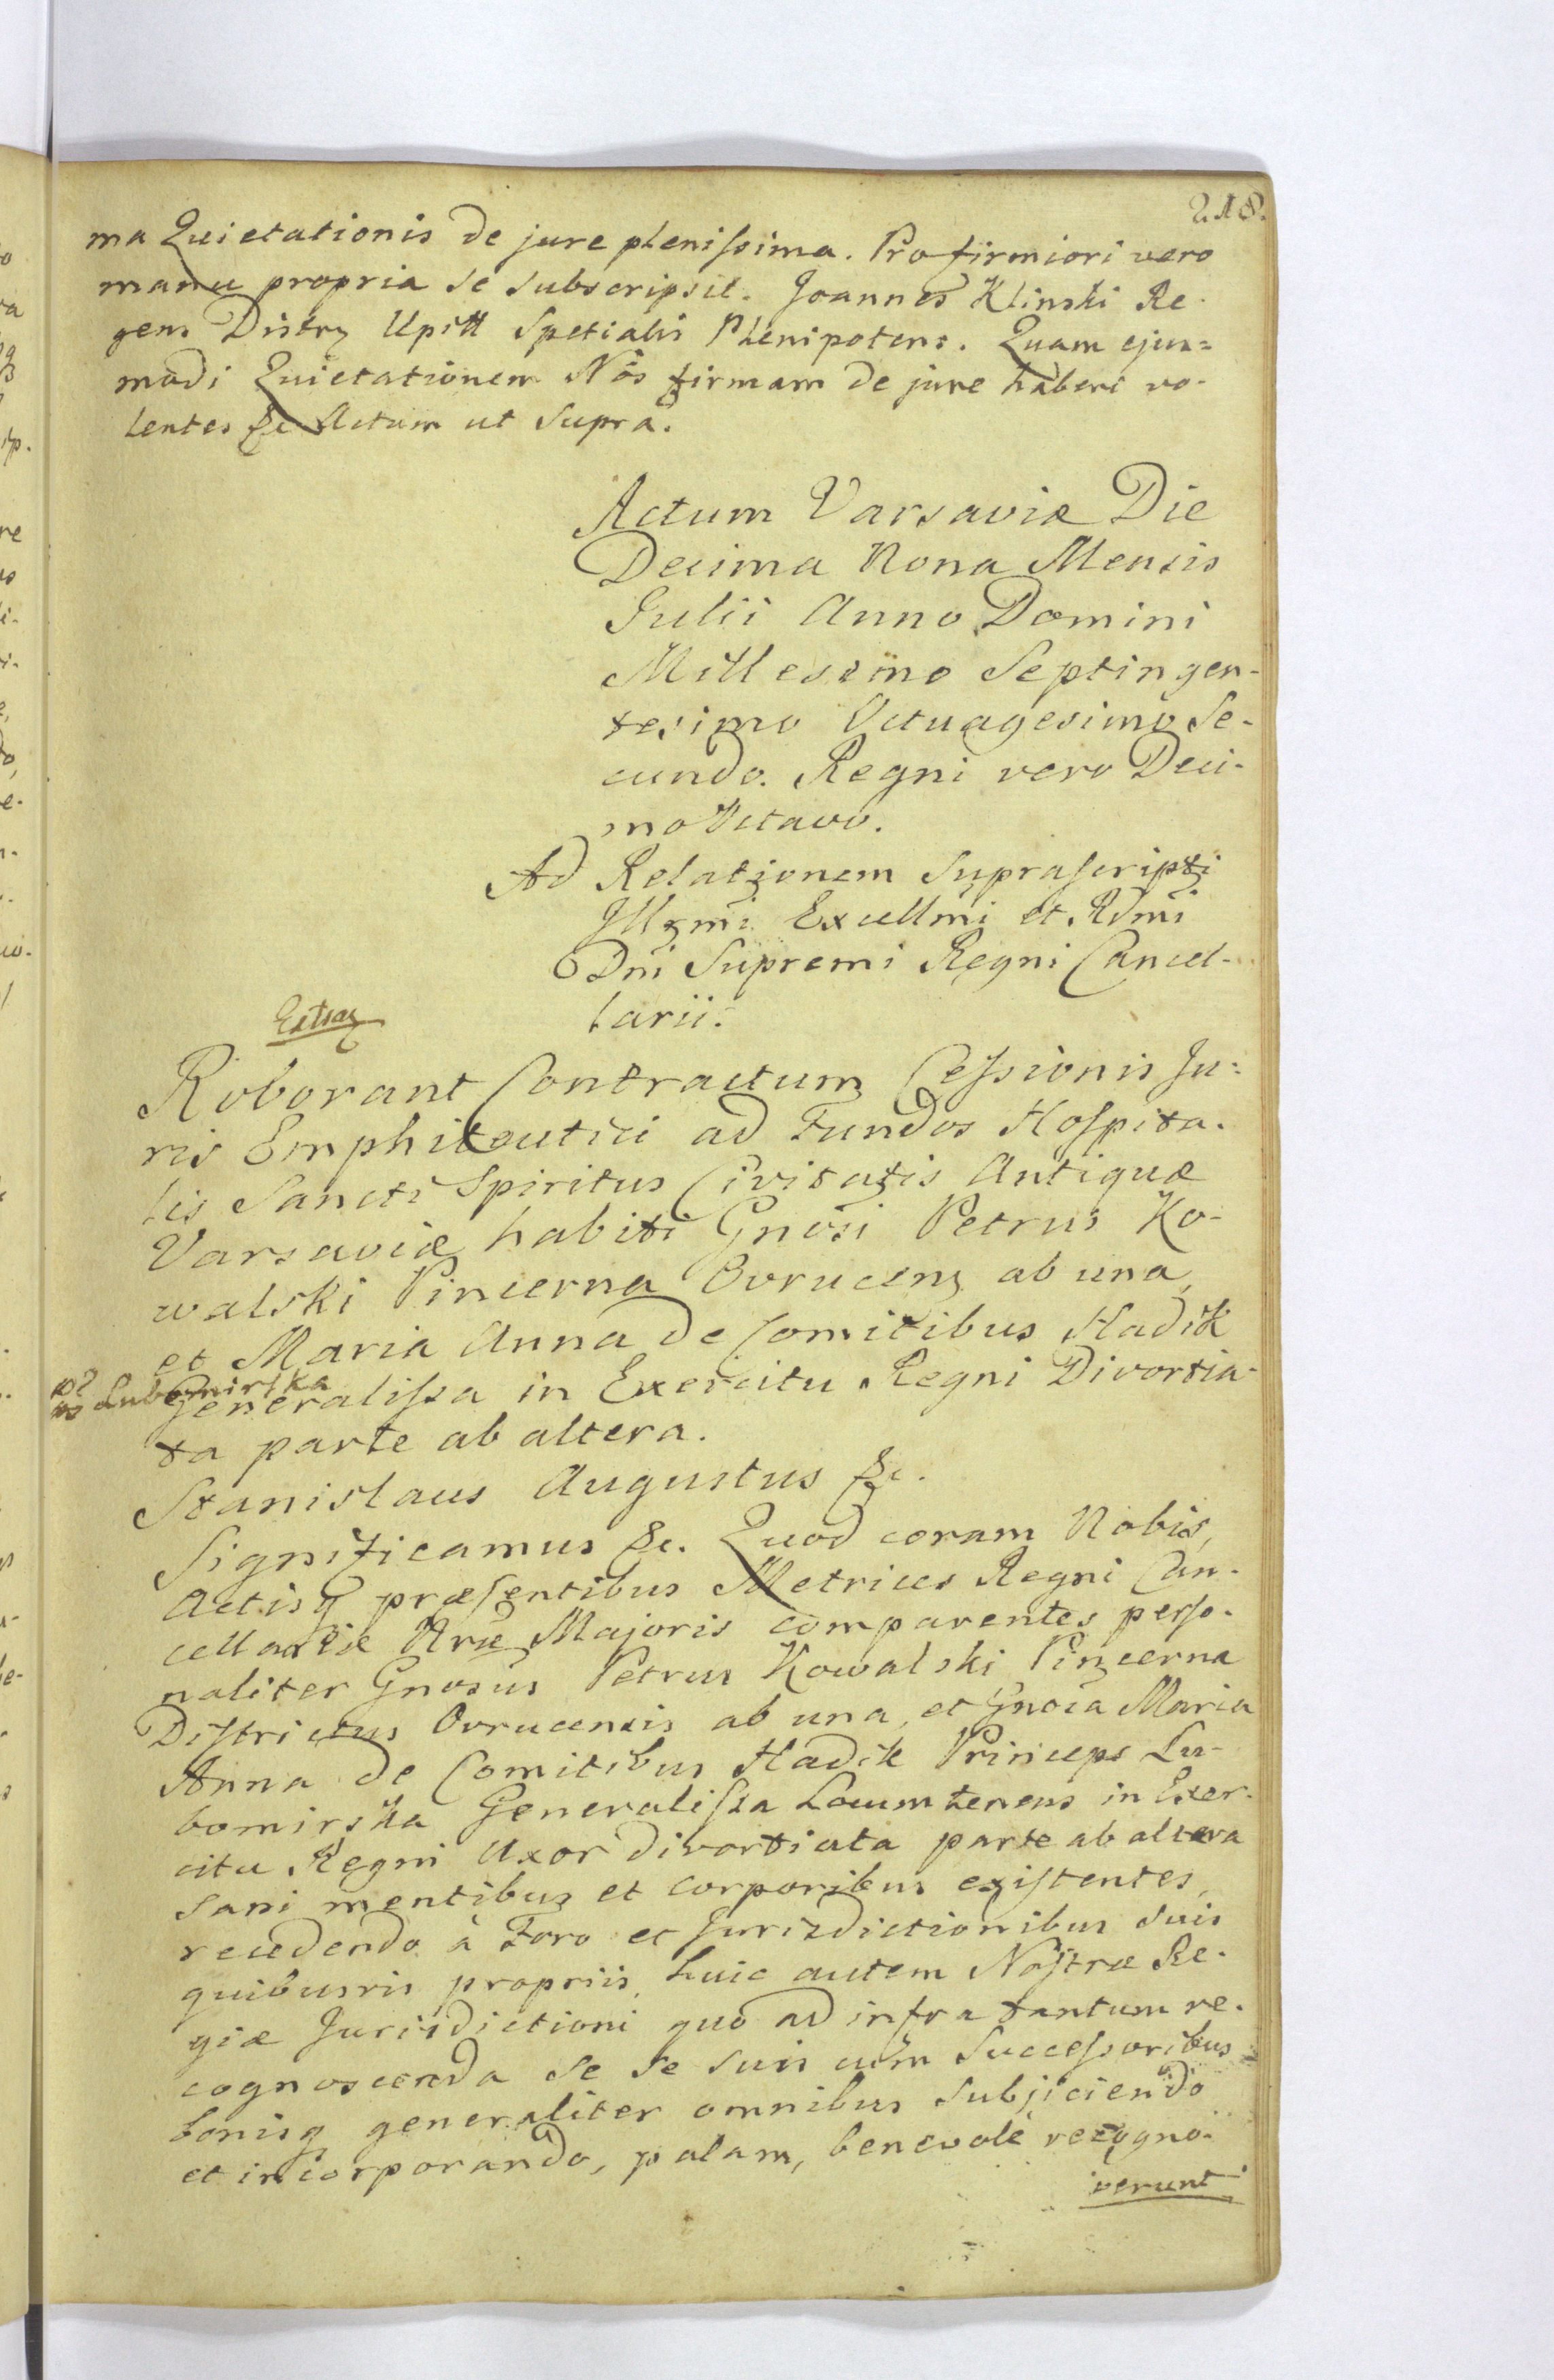 218.
ma Quietationis de jure plenissima. Pro firmiori vero
manu propria se subscripsit. Joannes Klinski Re-
gens Distry Upitt Spetialis Plenipotens. Quam ejus=
modi Quietationem Nos firmam de jure haberi vo-
lentes &c Actum ut supra.
Actum Varsaviæ Die
Decima Nona Mensis
Julii Anno Domini
Millesimo Septingen-
tesimo Octuagesimo Se-
cundo. Regni vero Deci-
mo Octavo.
Ad Relationem Suprascripti
Illmi Excellmi et Rdmi
Dni Supremi Regni Cancel-
larii.
Roborant Contractum Cessionis Ju-
ris Emphiteutici ad Fundos Hospita-
lis Sancti Spiritus Civitatis Antiquæ
Varsaviæ habiti Gnosi Petrus Ko-
walski Pincerna Ovrucens ab una,
et Maria Anna de Comitibus Hadik
Lubomirska
Generalissa in Exercitu Regni Divortia-
ta parte ab altera.
Stanislaus Augustus &c.
Significamus &c. Quod coram Nobis,
Actisq præsentibus Metrices Regni Can-
cellariæ Nræ Majoris comparentes perso-
naliter Gnosus Petrus Kowalski Pincerna
Districtus Ovrucensis ab una, et Gnosa Maria
Anna de Comitibus Hadik Princeps Lu-
bomirska Generalissa Locumtenens in Exer-
citu Regni Uxor divortiata parte ab altera
sani mentibus et corporibus existentes,
recedendo à Foro et Jurizdictionibus suis
quibusvis propriis, huic autem Nostræ Re-
giæ Jurisdictioni quo ad infra tantum re-
cognoscenda se se suis cum Successoribus
bonisq generaliter omnibus subjiciendo
et incorporando, palam, benevole recogno-
verunt